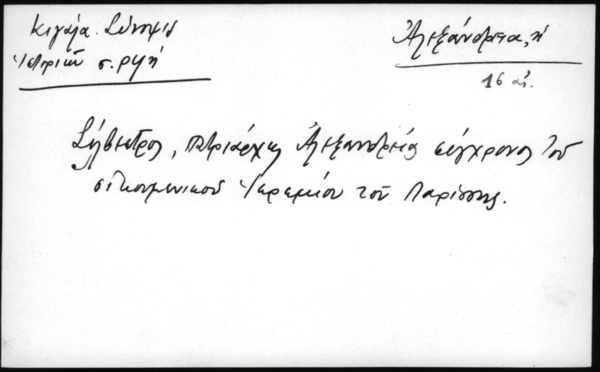 Κιγάλα. Σύνοψις
Ἱστοριῶν σ. ρμή
Ἀλεξάνδρεια, ἡ
16 αἰ.
Σίλβεστρος, Πατριάρχης Ἀλεξανδρείας σύγχρονος τοῦ
οἰκουμενικοῦ Ἱερεμίου τοῦ Λαρίσσης.